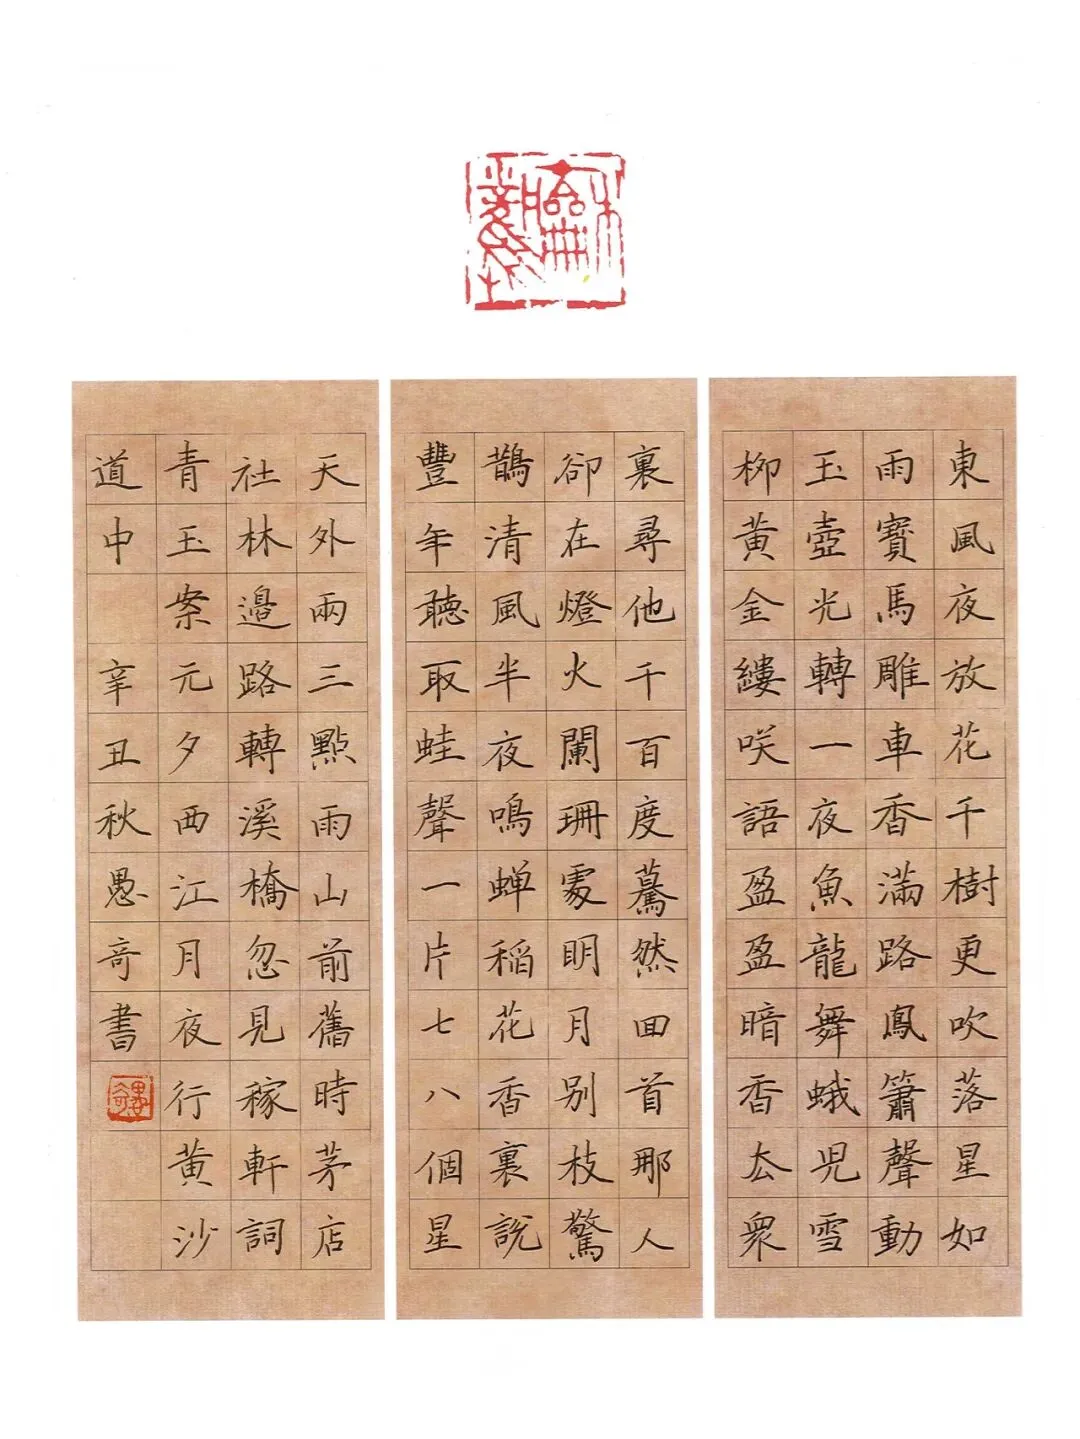 東風夜放花千樹更吹落星如
雨寶馬雕車香滿路鳳簫聲動
玉壺光轉一夜魚龍舞蛾兒雪
柳黃金縷咲語盈盈暗香厺衆
裏尋他千百度驀然囬首那人
卻在燈火闌珊處明月别枝驚
鵲清風半夜鳴蝉稻花香裏說
豐年聽取蛙聲一片七八個星
天外兩三點雨山前舊時茅店
社林邊路轉溪橋忽見稼軒詞
青玉案元夕西江月夜行黄沙
道中 辛丑秋愚竒書